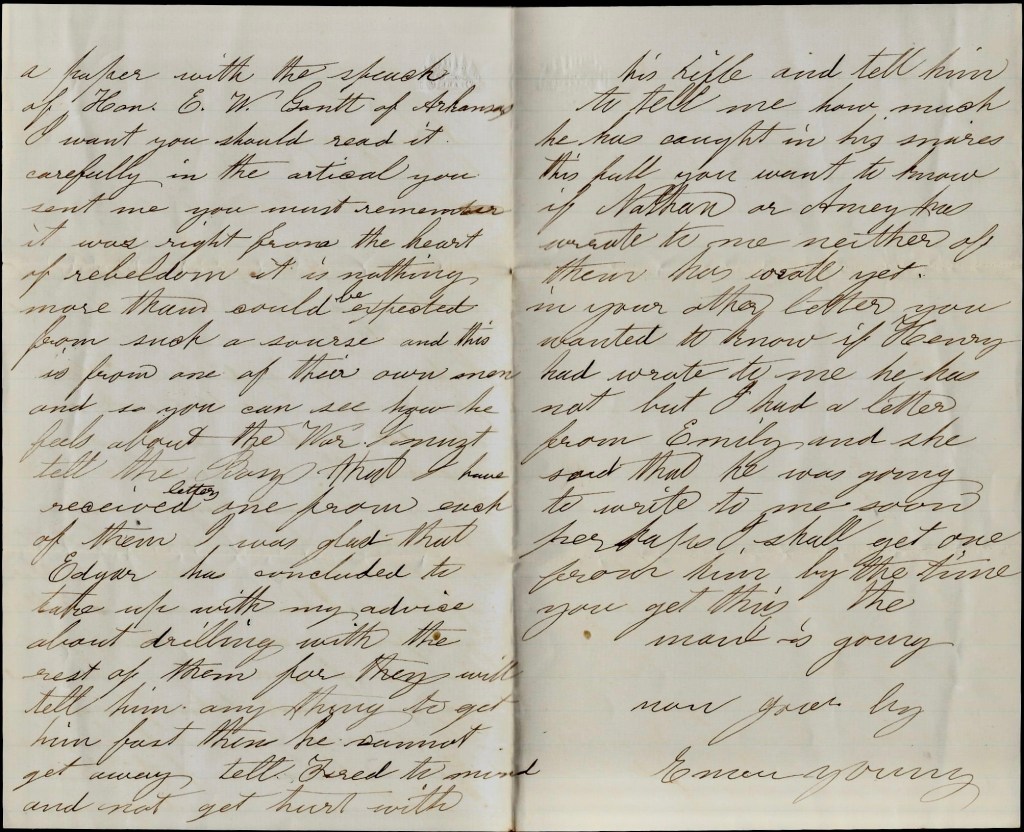 a paper with the speach
of Hon. E. W. Gantt of Arkansas
I want you should read it
carefully in the artical you
sent me you must remember
it was right from the heart
of rebeldom it is nothing
more than could be expected
from such a sourse and this
is from one of their own men
and so you can see how he
feels about the War. I must
tell the Boys that I have
received letter one from each
of them I was glad that
Edgar has concluded to
take up with my advice
about drilling with the
rest of them for they will
tell him any thing to get
him fast then he cannot
get away tell Fred to mind
and not get hurt with
his rifle and tell him
to tell me how much
he has caught in his snares
this fall you want to know
if Nathan or Amey has
wrote to me neither of
them has wrote yet.
in your other letter you
wanted to know if Henry
had wrote to me he has
not but I had a letter
from Emily and she
said that he was going
to write to me soon
perhaps I shall get one
from him by the time
you get this the
mail is going
now good by
Emou young